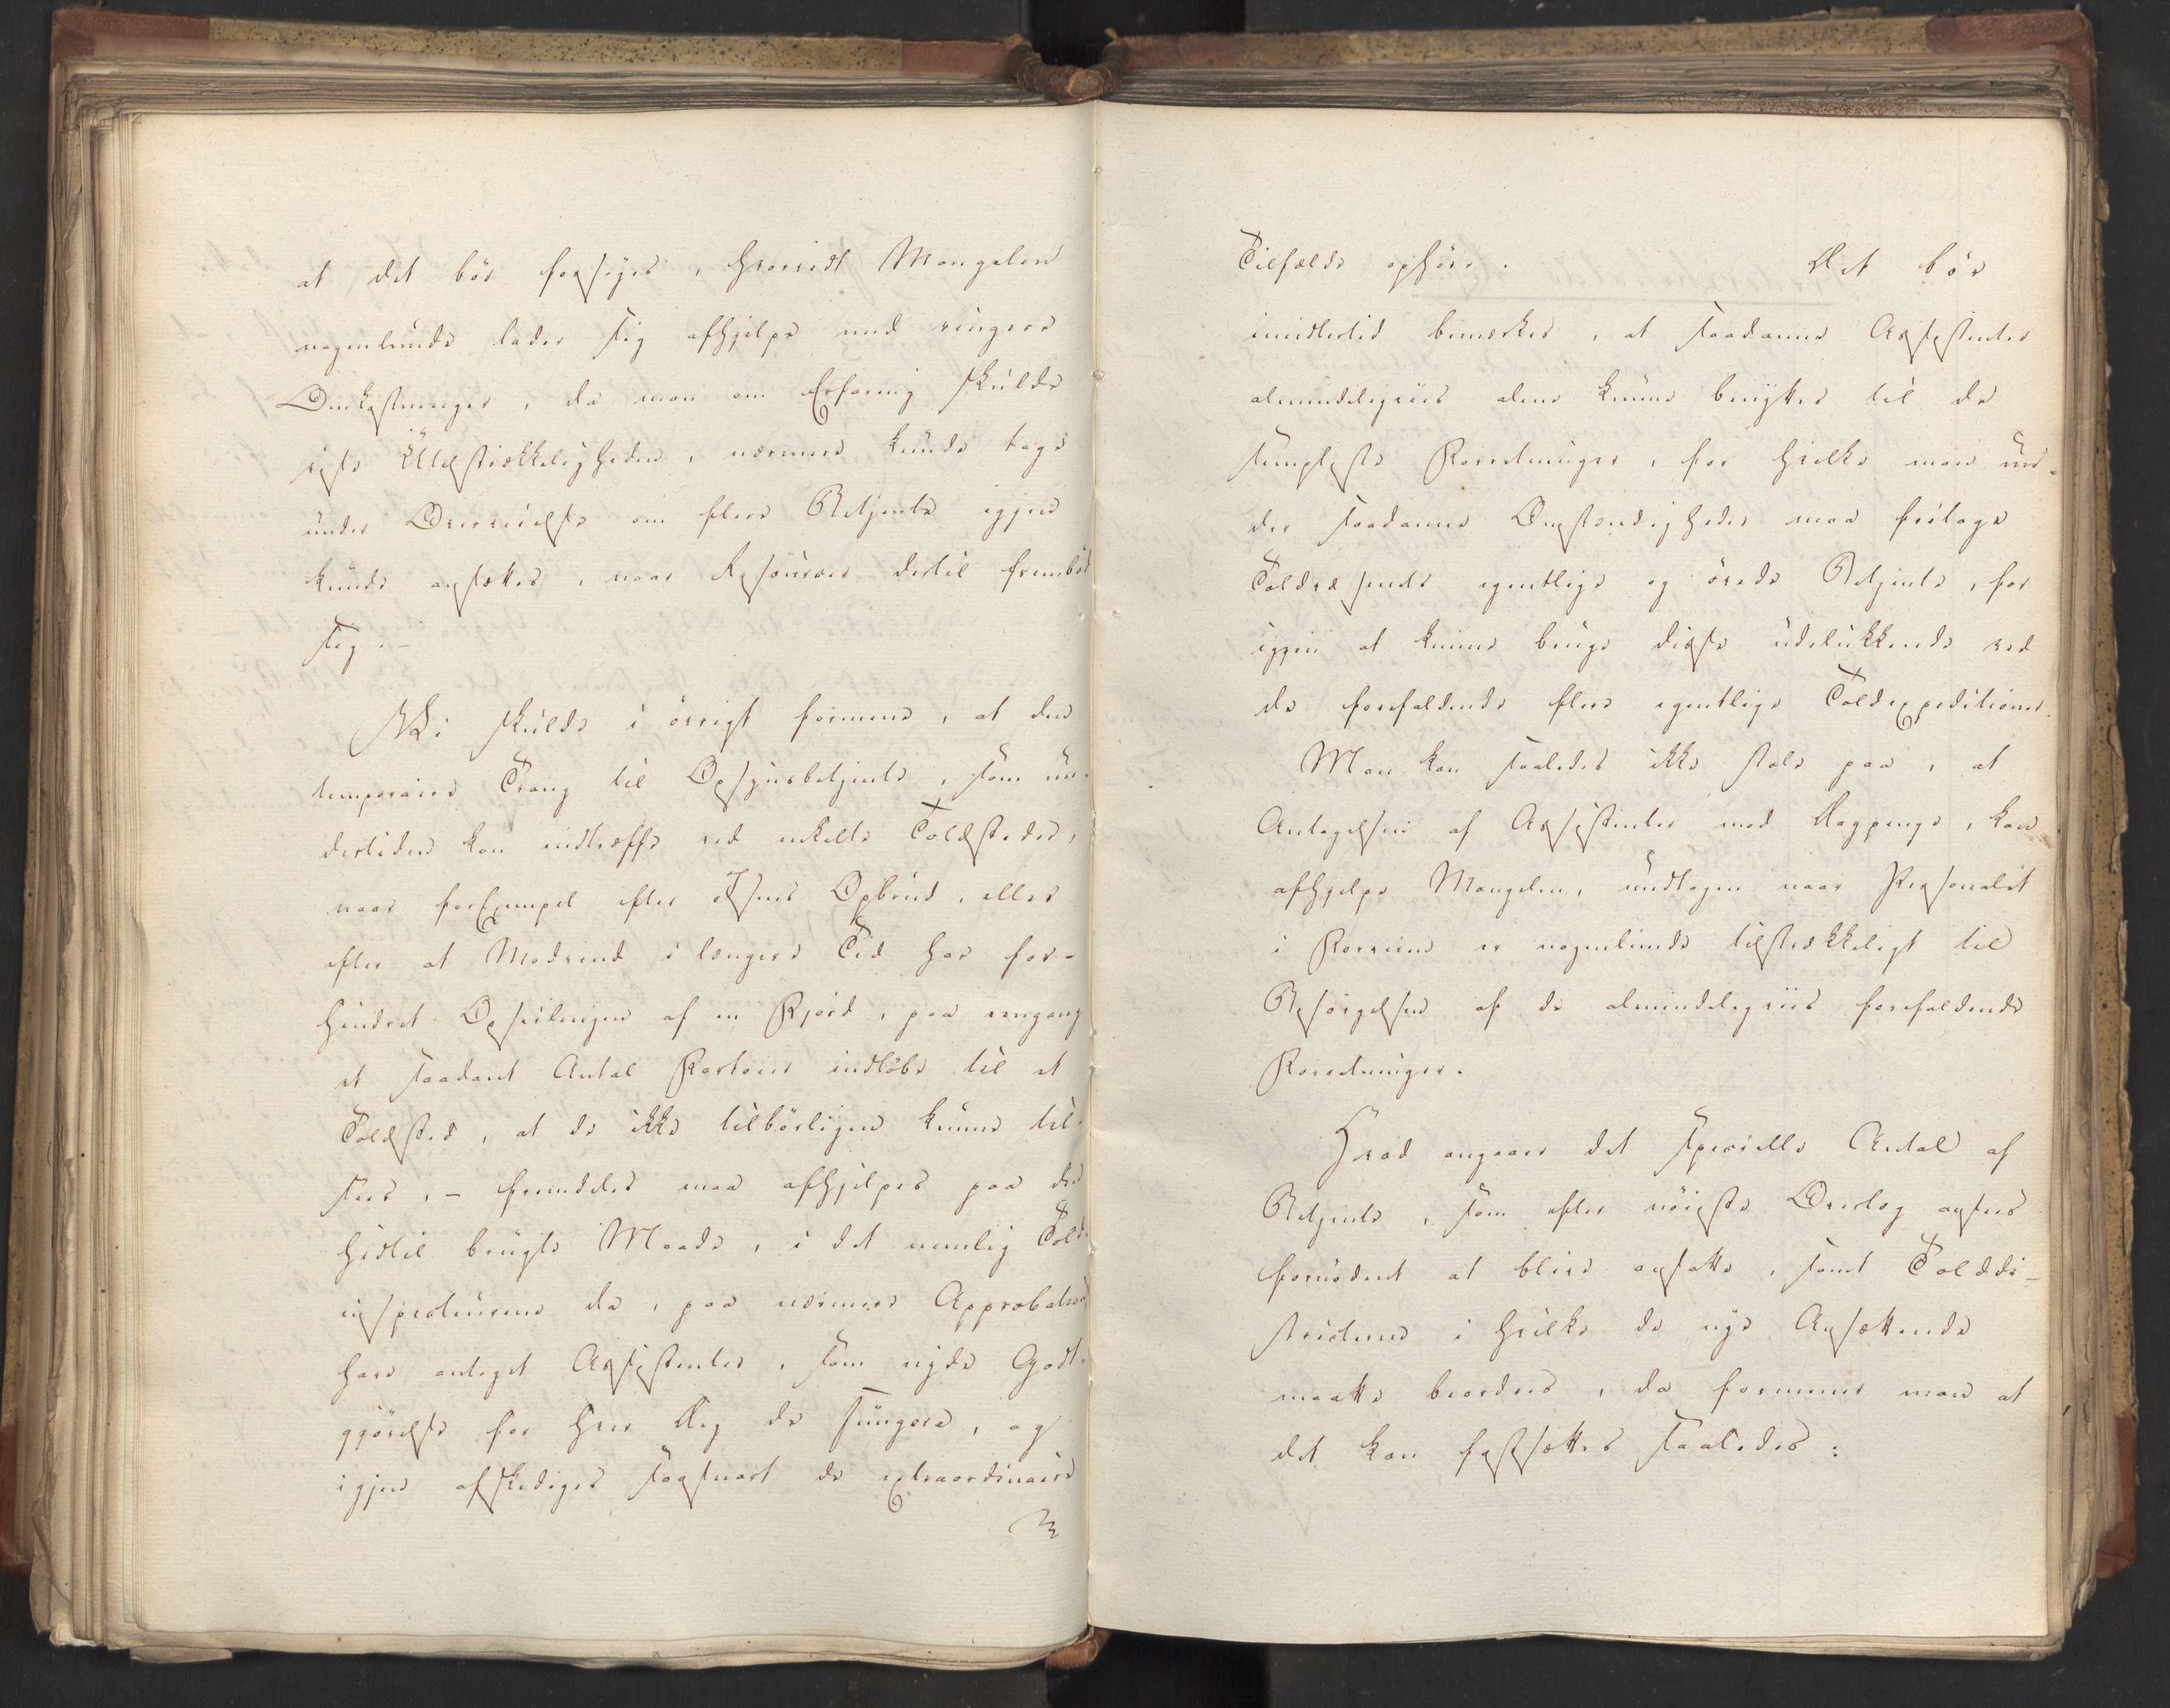 at det bör forsøges, hvorvidt Mangelen
nogenlunde lader sig afhjelpe med ringere
Omkostninger, da man om Erfaring skulde
vise Utilstrækkeligheden, nærmere kunde tage
under Overveielse om flere Betjente igjen
kunde ansættes, naar Resourcer dertil frembød
sig. -
Vi skulde i övrigt formene, at den
temporaire Trang til Opsynsbetjente, som un-
dertiden kan indtræffe ved enkelte Toldsteder,
naar for Exempel efter Isens Opbrud, eller
efter at Modvind i længere Tid har for-
hindret Opseilingen af en Fjord, paa eengang
et saadant Antal Fartøier indløbe til et
Toldsted, at de ikke tilbörligen kunne til-
sees, - fremdeles maa afhjelpes paa den
hidtil brugte Maade, i det nemlig Told-
inspecteurene da, paa nærmere Approbation
have antaget Assistenter, som nyde Godt-
gjörelse for hver Dag de fungere, og
igjen afskediges saasnart de extraordinaire
Tilfælde ophöre. Det bör
imidlertid bemærkes, at saadanne Assistenter
almindeligviis alene kunne benyttes til de
simpleste Forretninger, for hvilke man un-
der saadanne Omstændigheder maa fritage
Toldvæsenets egentlige og övede Betjente, for
igjen at kunne bruge disse udelukkende ved
de forefaldende flere egentlige Toldexpeditioner.
Man kan saaledes ikke stole paa, at
Antagelsen af Assistenter mod Dagpenge, kan
afhjelpe Mangelen, undtagen naar Personalet
i Forveien er nogenlunde tilstrækkeligt til
Besörgelsen af de almindeligviis forefaldende
Forretninger.
Hvad angaaer det specielle Antal af
Betjente, som efter nöieste Overlæg ansees
fornödent at blive ansatte, samt Tolddi-
stricterne i hvilke de nye Ansættende
maatte beordres, da formener man at
det kan fastsættes saaledes: